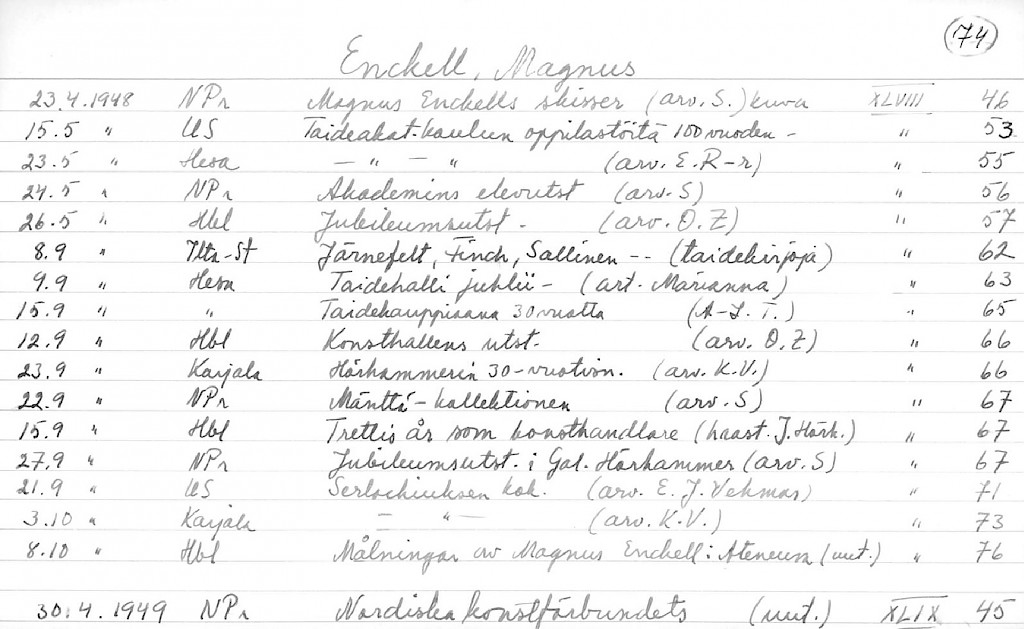 74
Enckell, Magnus
23.4.1948 NPr Magnus Enckells skisser (arv. S.) kuva XLVIII 46
15.5 " US Taideakat. koulun oppilastöitä 100 vuoden - " 53
23.5 " Hesa - " - " (arv. E.R-r) " 55
24.5 " NPr Akademins elevutst (arv. S) " 56
26.5 " Hbl Jubileumsutst. (arv. O.Z) " 57
8.9 " Ilta-St Järnefelt, Finch, Sallinen -- (taidekirjoja) " 62
9.9 " Hesa Taidehalli juhlii - (art. Marianna) " 63
15.9 " " Taidekauppiaana 30 vuotta (A-L. T.) " 65
12.9 " Hbl Konsthallens utst. (arv. O.Z) " 66
23.9 " Karjala Hörhammerin 30-vuotion. (arv. K.V.) " 66
22.9 " NPr Mänttä-kollektionen (arv. S) " 67
15.9 " Hbl Trettio år som konsthandlare (haast. J. Hörh.) " 67
27.9 " NPr Jubileumsutst. i Gal. Hörhammer (arv. S) " 67
21.9 " US Serlachiuksen kok. (arv. E. J. Vehmas) " 71
3.10 " Karjala - " - (arv. K.V.) " 73
8.10 " Hbl Målningar av Magnus Enckell i Ateneum (uut.) " 76
30.4.1949 NPr Nordiska konstförbundets (uut.) XLIX 45